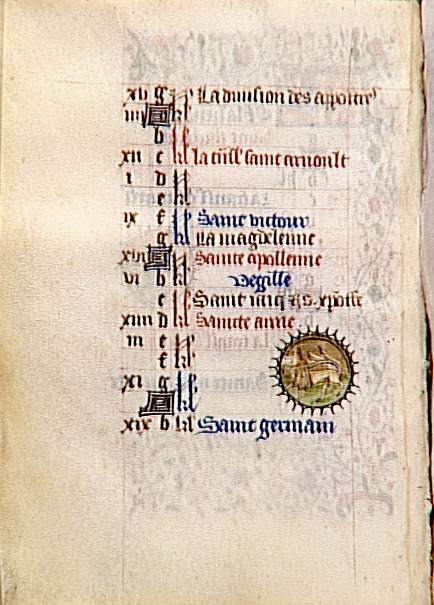 xii g kl La division des apostres
iiii A kl
b kl
xii c kl la transl saint arnoult
i d kl
e kl
ix f kl Saint victour
g kl La magdelenne
xvii A kl Saincte apollenne
vi b kl Vegille
c kl Saint iaq xpofle
xiiii d kl Saincte anne
iii e kl
f kl
xi g kl
A kl
xix b kl Saint germain